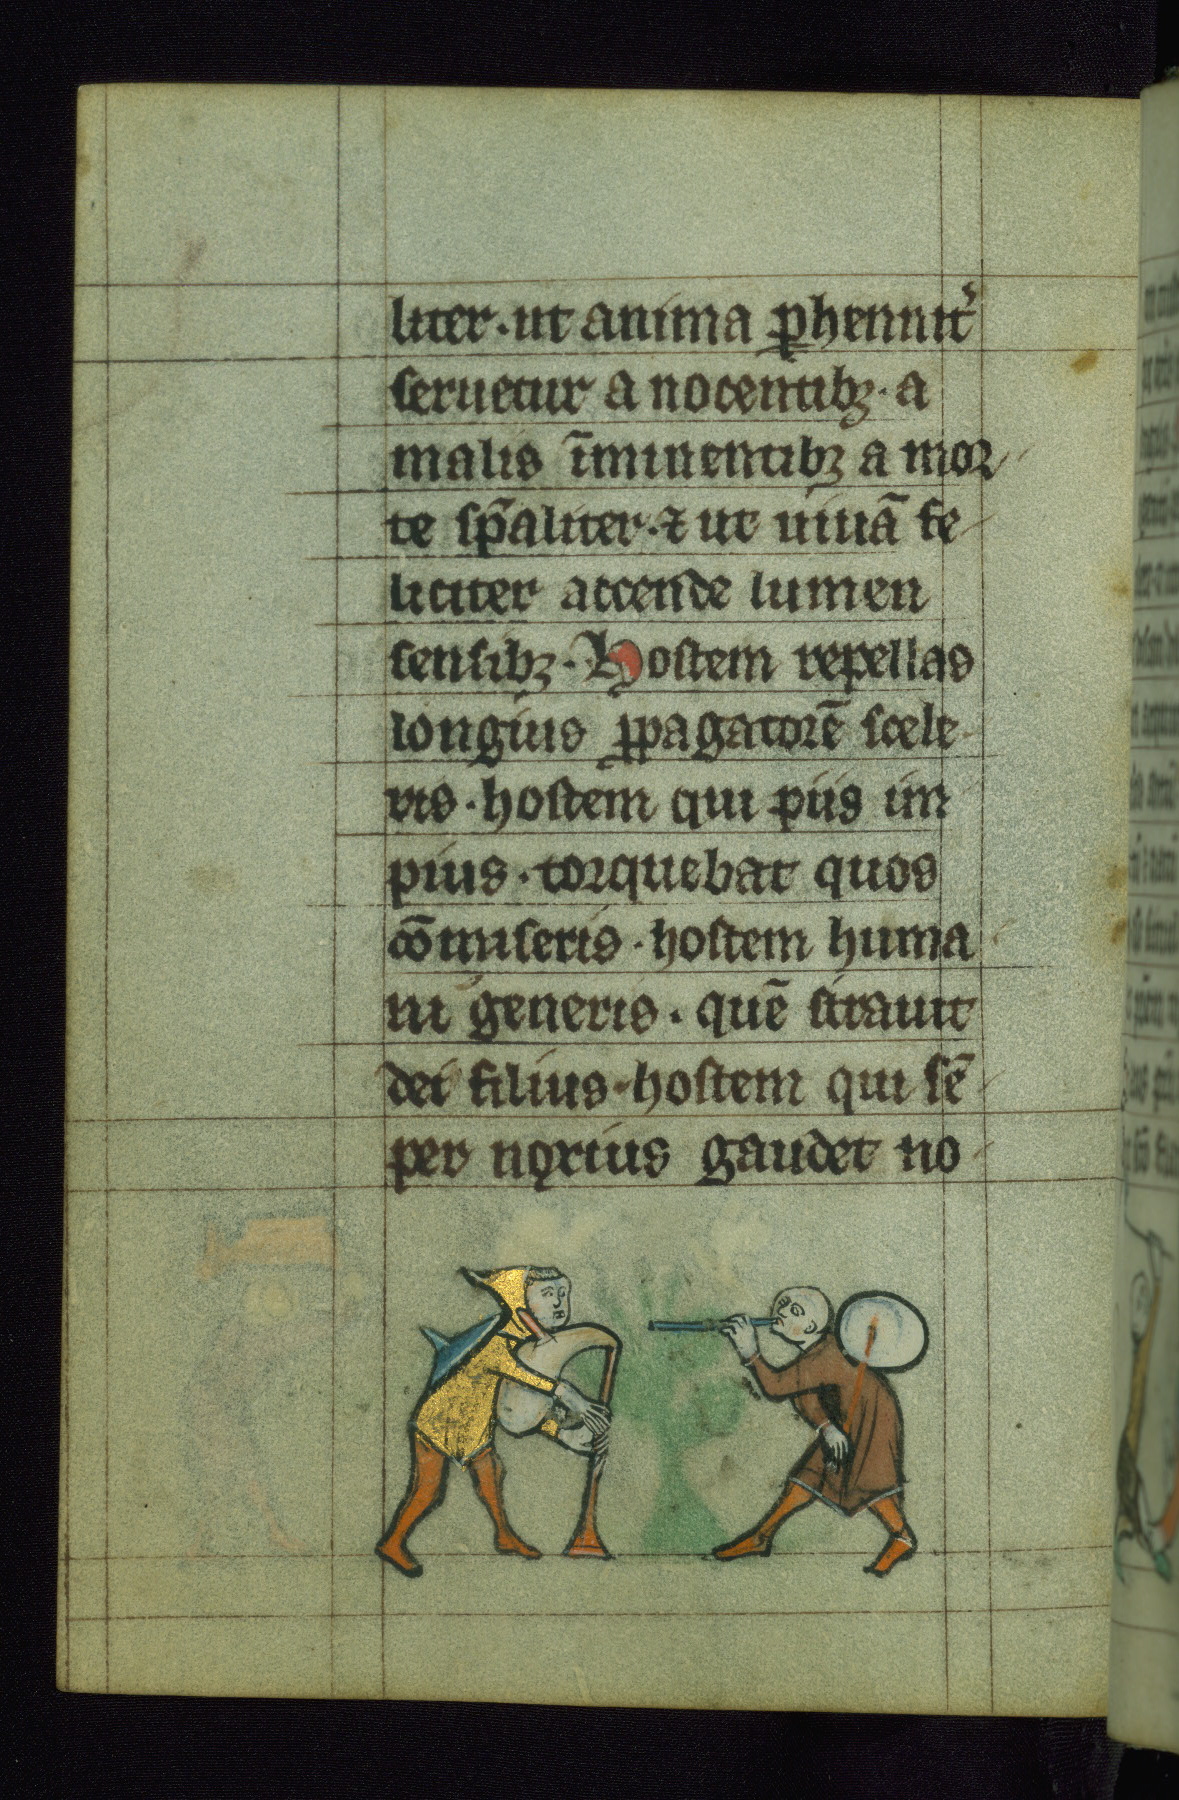 liter · ut anima ꝑhennit᷑
seruetur a nocentibꝫ · a
malis īminentibꝫ a mor
te sp̄aliter · ⁊ ut uiuā fe
liciter accende lumen
sensibꝫ · Hostem repellas
longius ꝓpagatorē scele
ris · hostem qui piis im
pius · torquebat quos
cōmiseris · hostem huma
ni generis · quē strauit
dei filius · hostem qui sē
per noxius gaudet no